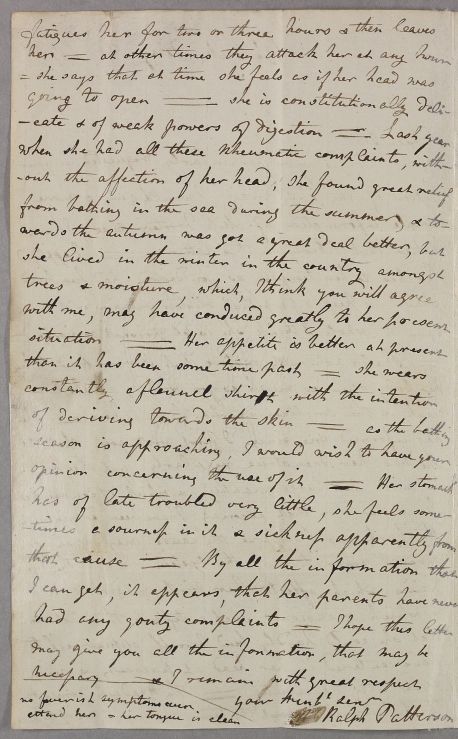 fatigues her for two or three hours & then leaves
her — at other times they attack her at any hour
= she says that at time she feels as if her head was
going to open —— she is constitutionally deli-
-cate & of weak powers of digestion — Last year
when she had all these Rheumatic complaints, with-
-out the affection of her head, she found great relief
from bathing in the sea during the summer, & to-
wards the autumn was got a great deal better, but
she lived in the winter in the country amongst
trees & moisture, which, I think you will agree
with me, may have conduced greatly to her present
situation —— Her appetite is better at present
than it has been some time past = she wears
constantly a flannel shirt with the intention
of deriving towards the skin — as the bathing
season is approaching, I would wish to have your
opinion concerning the use of it — Her stomach
has of late troubled very little, she feels some-
-times a sourness in it & sickness apparently from
that cause = By all the information that
I can get, it appears, that her parents have never
had any gouty complaints = I hope this letter
may give you all the information, that may be
necessary — & I remain with great respect
your Humle servt
Ralph Patterson
no feverish symptoms ever
attend her & her tongue is clean